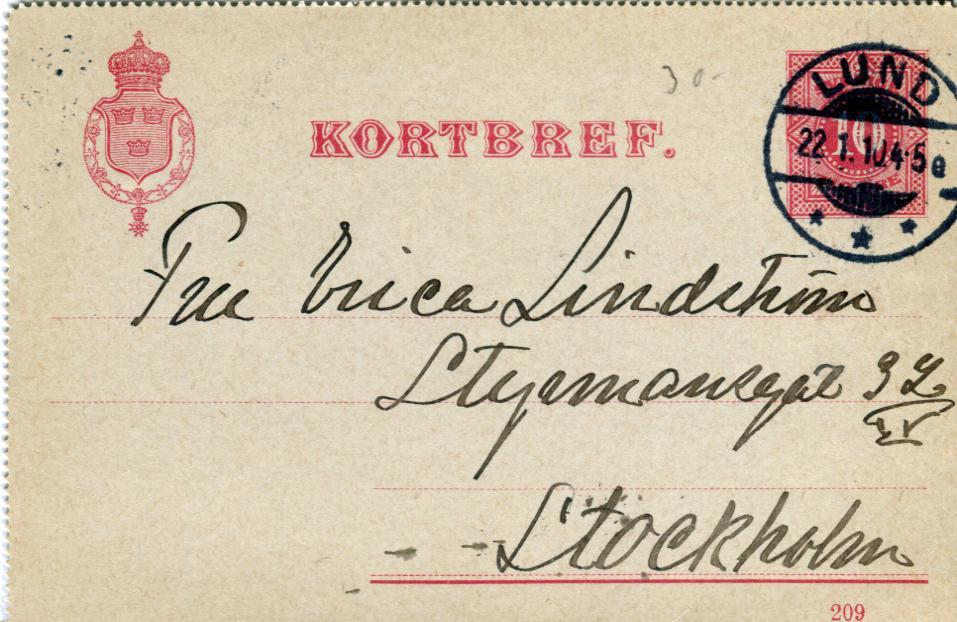 30-
KORTBREF.
LUND
10
22.1.10.4-5 e
Fru Erica Lindström
Styrmansgat 32
IV
Stockholm
209